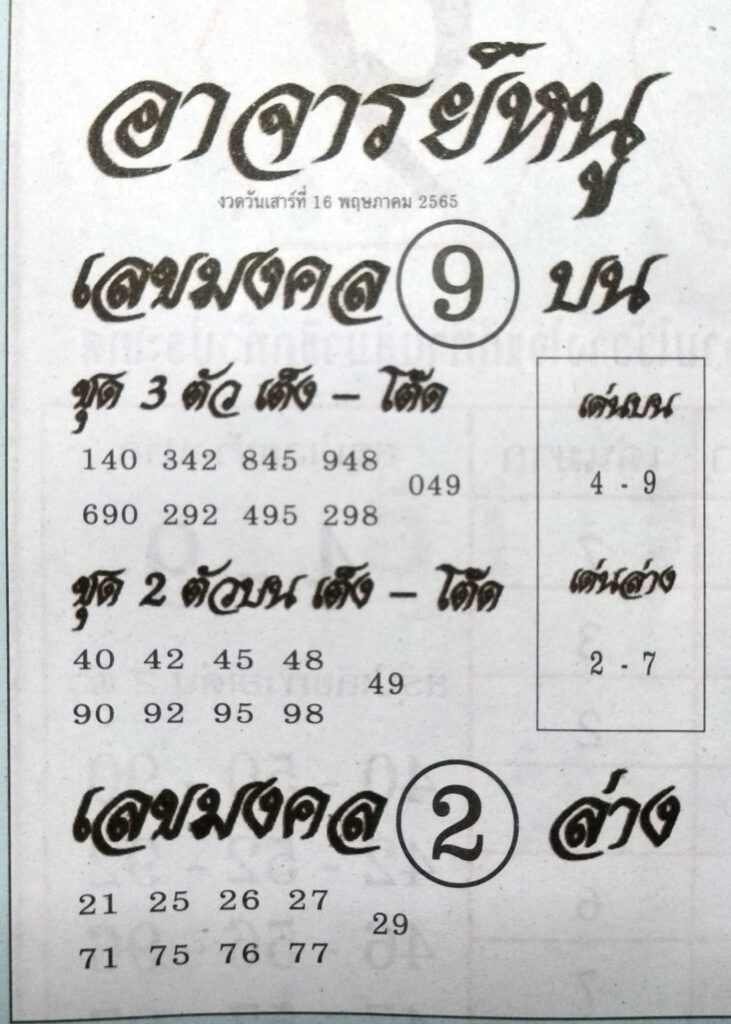 อาจารย์หนู
งวดวันเสาร์ที่ 16 พฤษภาคม 2565
เลขมงคล 9 บน
ชุด 3 ตัว เต็ง – โต๊ด
140 342 845 948
049
690 292 495 298
เด่นบน
4 - 9
ชุด 2 ตัวบน เต็ง – โต๊ด
40 42 45 48
49
90 92 95 98
เด่นล่าง
2 - 7
เลขมงคล 2 ล่าง
21 25 26 27
29
71 75 76 77